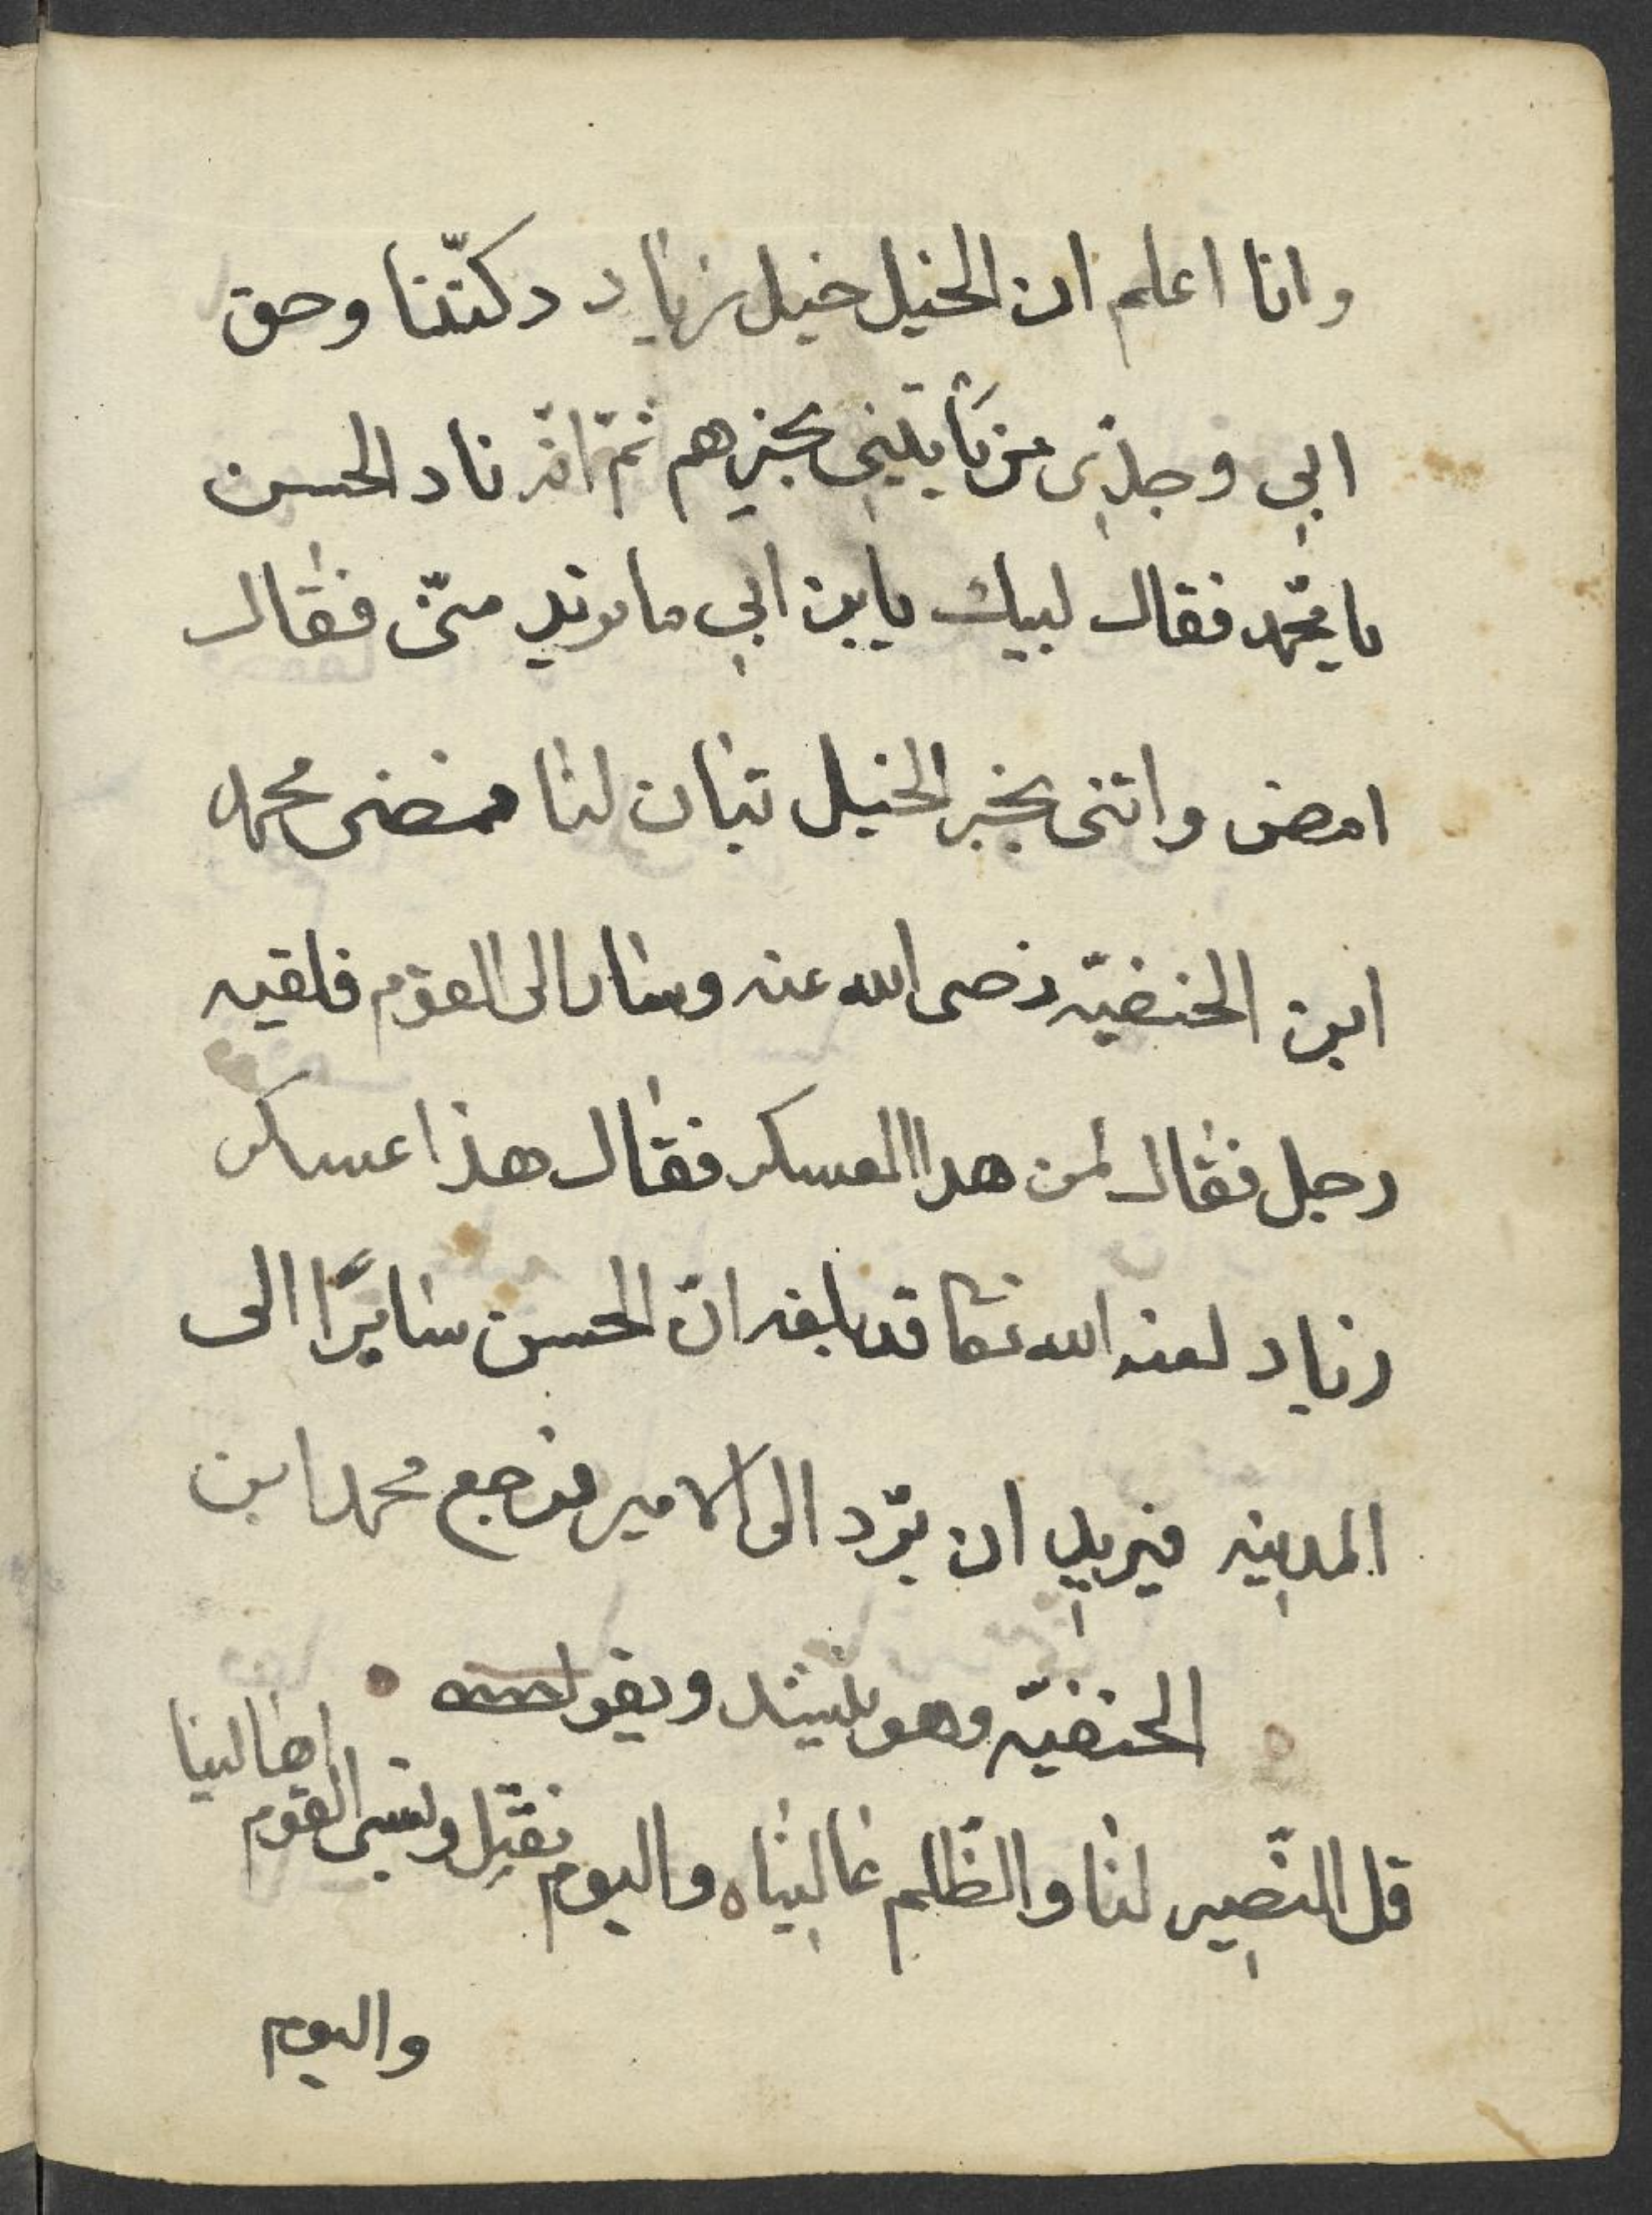 وانا اعلم ان الخيل خيل زياد دكتنا وحق
ابي وجدي من يأتيني بخبرهم ثمّ انّه ناد الحسن
يا محمّد فقال لبيك يابن ابي ما تريد منّي فقال
امض واتنى بخبر الخيل تبان لنا فمضى محمد
ابن الحنفيّه رضى الله عنه وسار الى القوم فلقيه
رجل فقال لمن هدا العسكر فقال هذا عسكر
زياد لعنه الله تعا قد بلغه انّ الحسن سايرًا الى
المدينه فيريد ان يرّد الى الامير فرجع محمد ابن
الحنفيّه وهو ينشد ويقول
قل النصير لنا والظّلم غالبناه واليوم نقتل ونسبى القوم اهالينا
واليوم